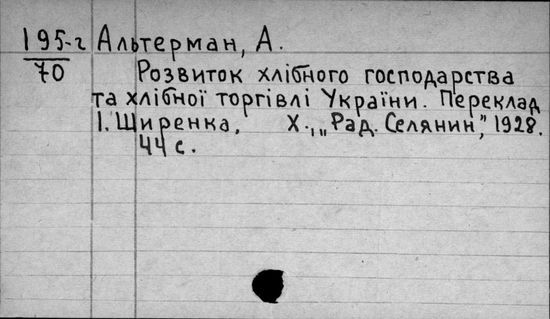 195-г Альтерман, А.
70
Розвиток хлібного господарства
та хлібної торгівлі України. Переклад
І. Щиренка, Х., „Рад. Селянин", 1928.
44 с.